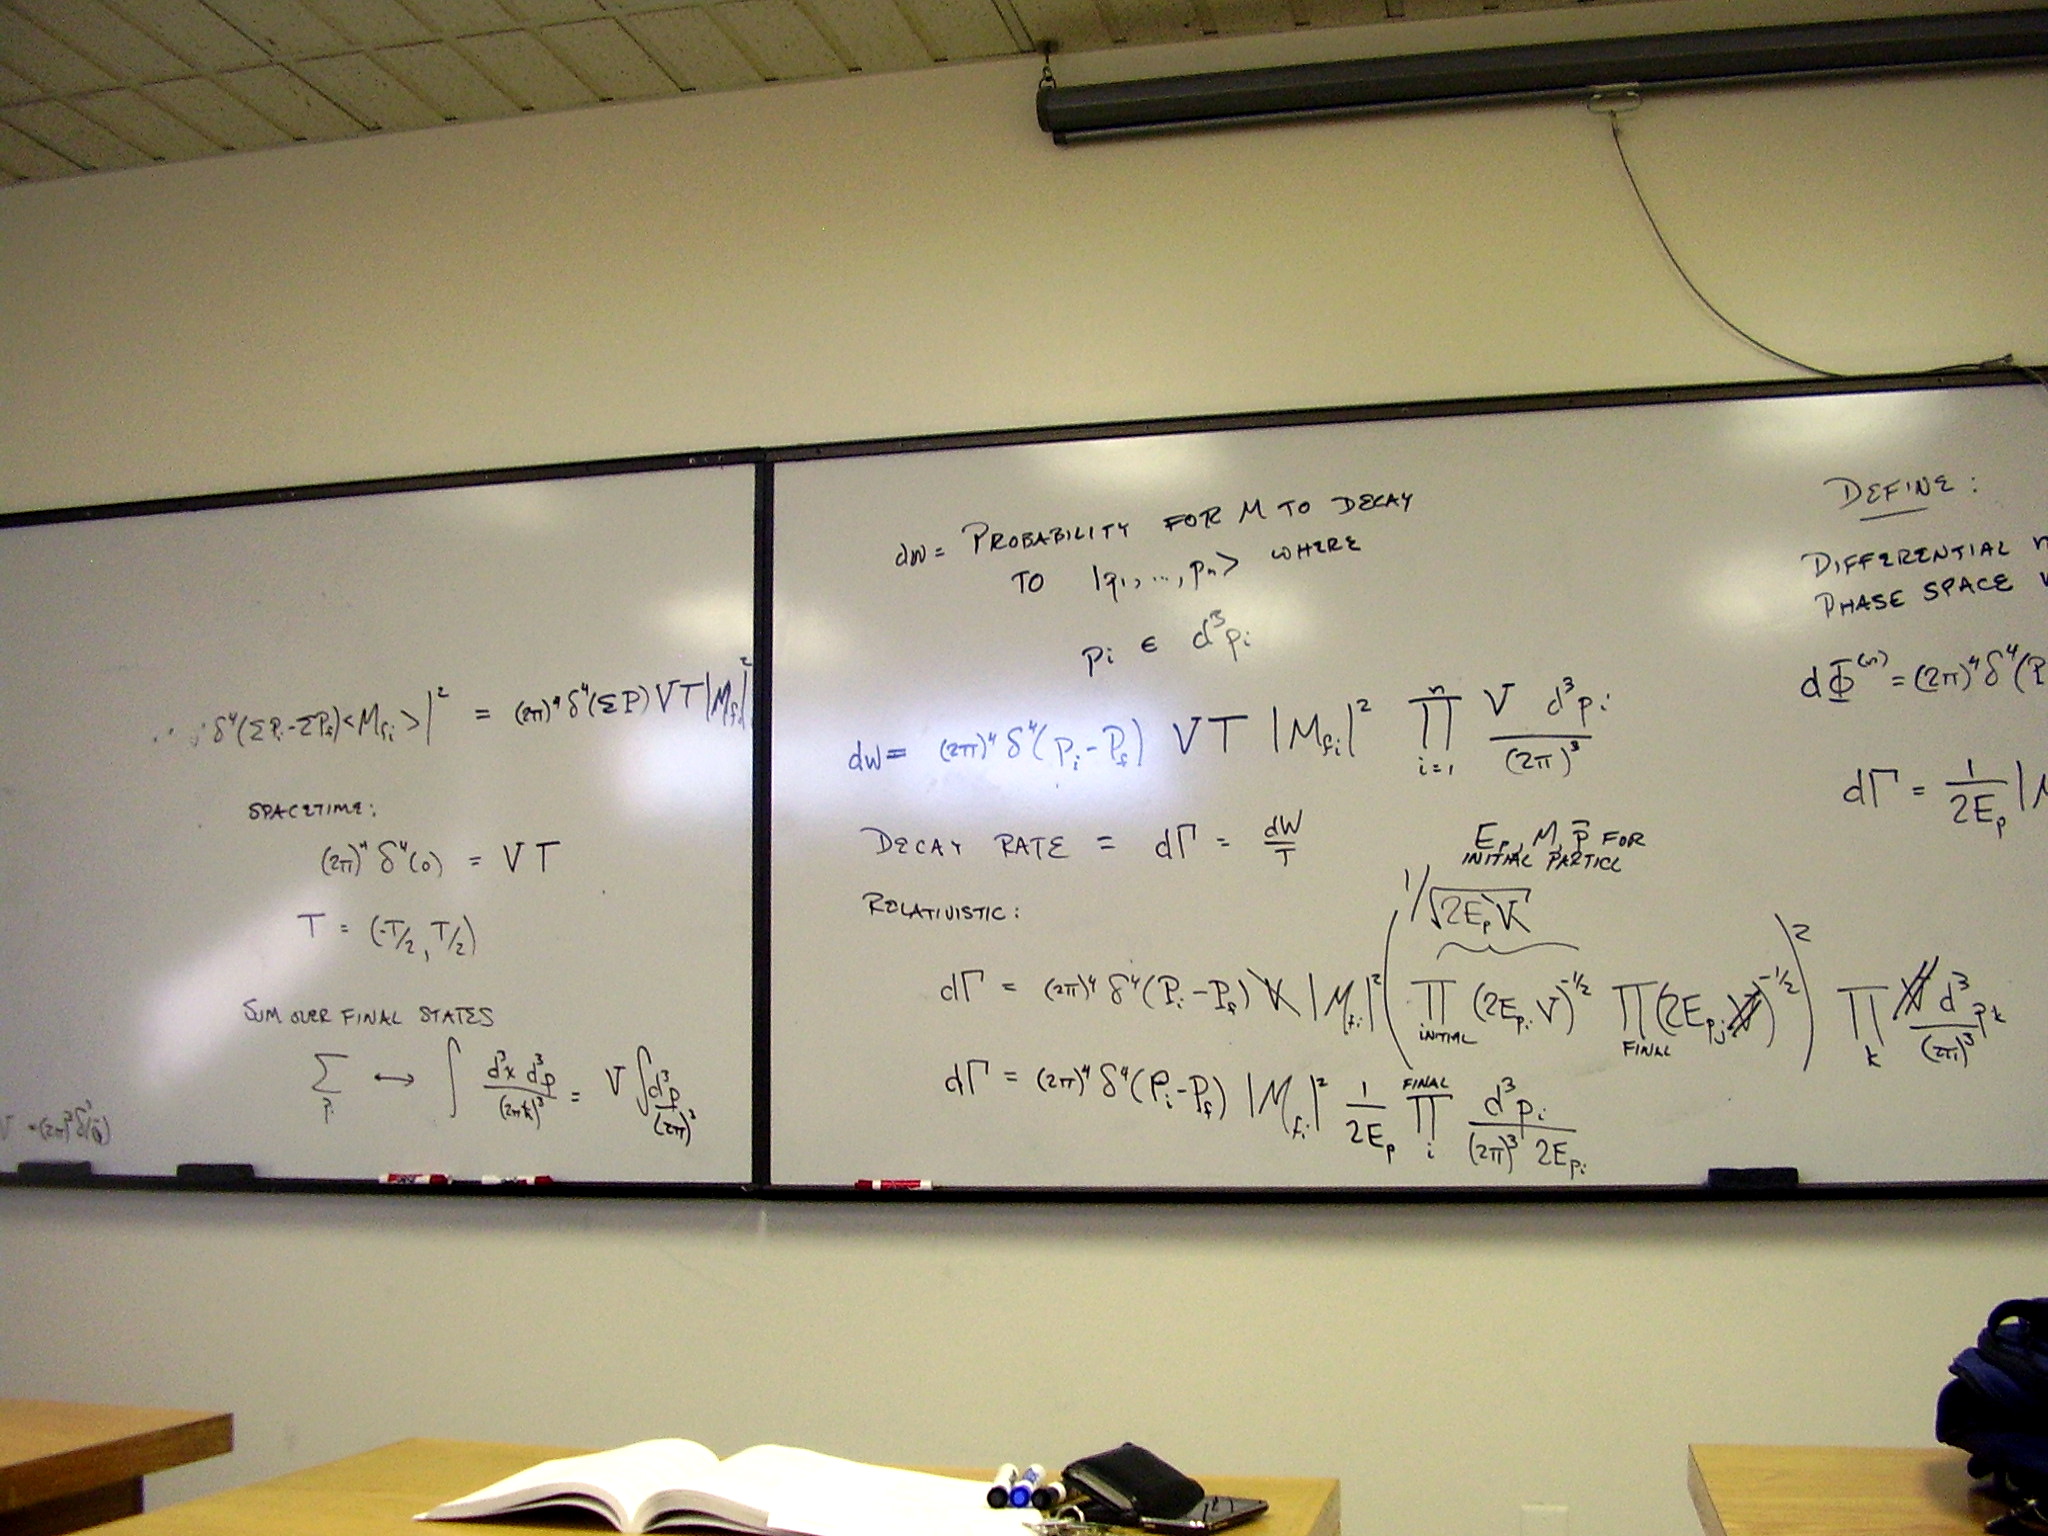 δ⁴(ΣPᵢ-ΣP_f)<M_fi>|² = (2π)⁴ δ⁴(ΣP) VT|M_fi|²
SPACETIME:
(2π)⁴ δ⁴(0) = VT
T = (-T/2, T/2)
SUM OVER FINAL STATES
Σ_Pi ↔ ∫ d³x d³p/(2πħ)³ = V ∫ d³p/(2π)³
dW = PROBABILITY FOR M TO DECAY
TO |p₁, ..., pₙ> WHERE
pᵢ ∈ d³pᵢ
dW = (2π)⁴ δ⁴(Pᵢ-P_f) VT |M_fi|² ∏_{i=1}^{n} V d³pᵢ/(2π)³
DECAY RATE = dΓ = dW/T
E_p, M, p̄ FOR
INITIAL PARTICL
RELATIVISTIC:
1/√2E_pV
dΓ = (2π)⁴ δ⁴(Pᵢ-P_f) V |M_fi|² (∏_INITIAL (2E_pi V)^{-1/2} ∏_FINAL (2E_pj V)^{-1/2})² ∏_k V d³p_k/(2π)³
dΓ = (2π)⁴ δ⁴(Pᵢ-P_f) |M_fi|² 1/2E_p ∏_i^FINAL d³pᵢ/(2π)³ 2E_pi
DEFINE:
DIFFERENTIAL
PHASE SPACE
dΦ⁽ⁿ⁾ = (2π)⁴ δ⁴(P
dΓ = 1/2E_p |M